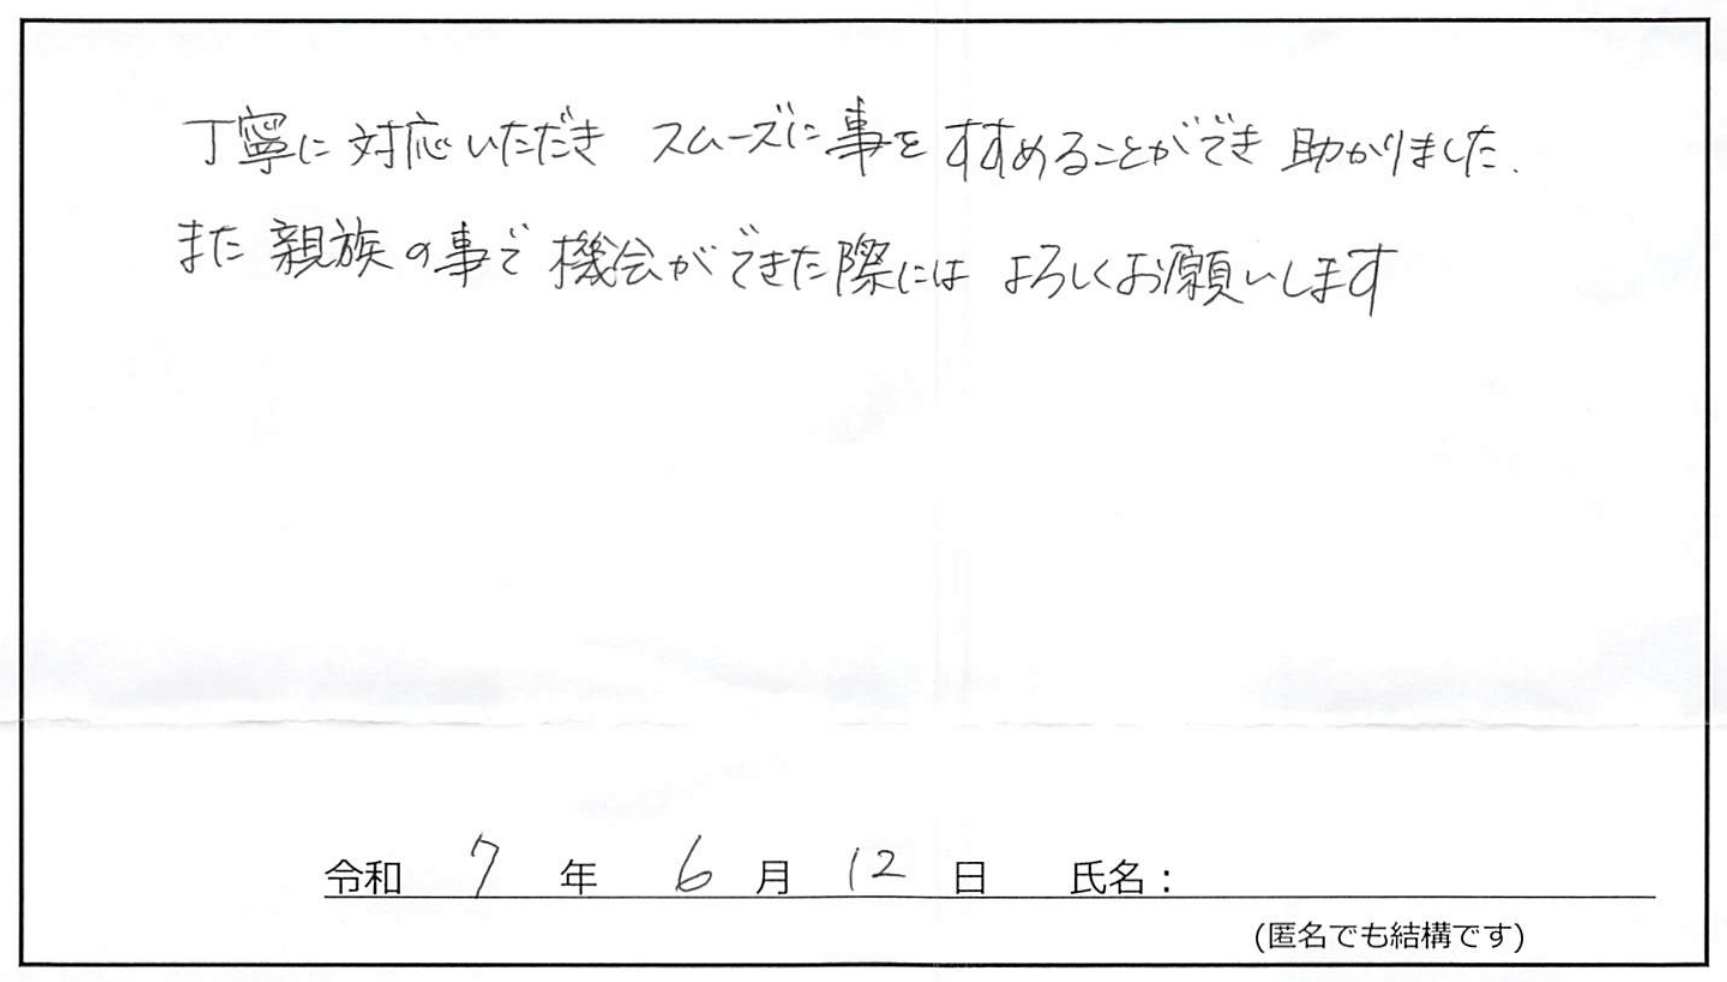 丁寧に対応いただき スムーズに事をすすめることができ 助かりました.
また親族の事で機会ができた際には よろしくお願いします
令和 7 年 6 月 12 日 氏名：
(匿名でも結構です)